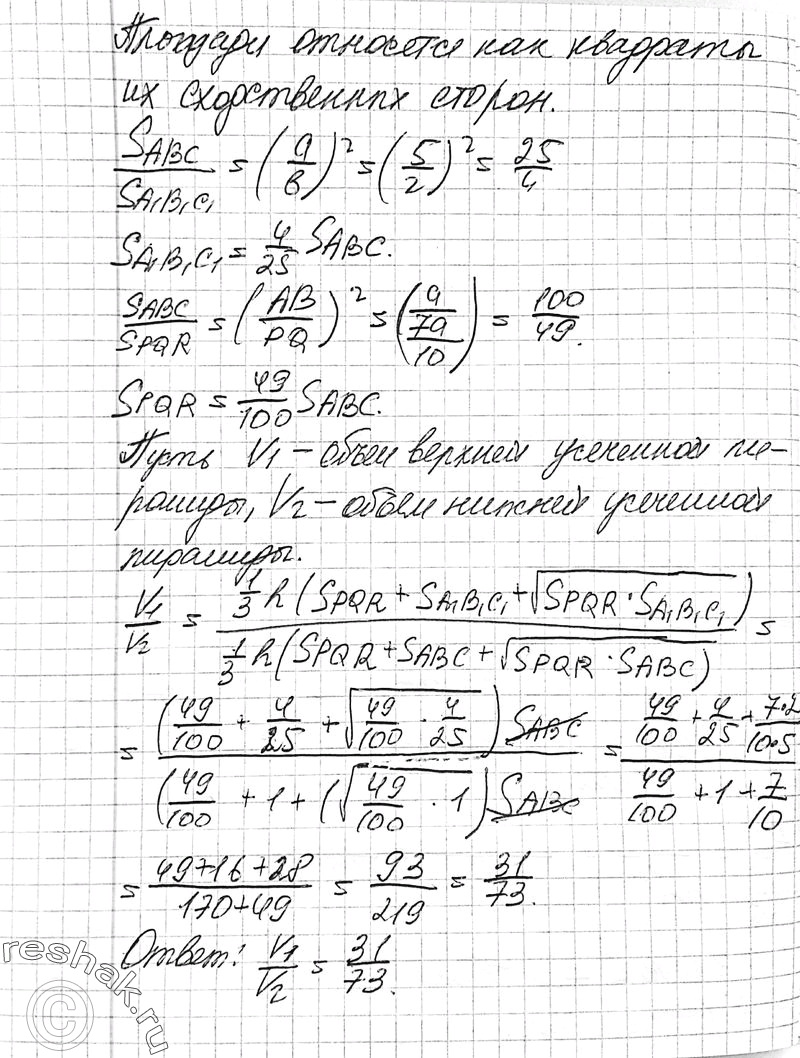 Площади относятся как квадраты
их сходственных сторон.
S_ABC/S_A₁B₁C₁ = (a/b)² = (5/2)² = 25/4
S_A₁B₁C₁ = 4/25 S_ABC.
S_ABC/S_PQR = (AB/PQ)² = (a/(7a/10)) = 100/49.
S_PQR = 49/100 S_ABC.
Пусть V₁ – объем верхней усеченной пи-
рамиды, V₂ – объем нижней усеченной
пирамиды.
V₁/V₂ = (1/3 h (S_PQR + S_A₁B₁C₁ + √(S_PQR · S_A₁B₁C₁)))/(1/3 h (S_PQR + S_ABC + √(S_PQR · S_ABC))) =
= ((49/100 + 4/25 + √(49/100 · 4/25)) S_ABC)/((49/100 + 1 + (√(49/100 · 1)) S_ABC) = (49/100 + 4/25 + 7·2/10·5)/(49/100 + 1 + 7/10)
= (49+16+28)/(170+49) = 93/219 = 31/73.
Ответ: V₁/V₂ = 31/73.
reshak.ru
©